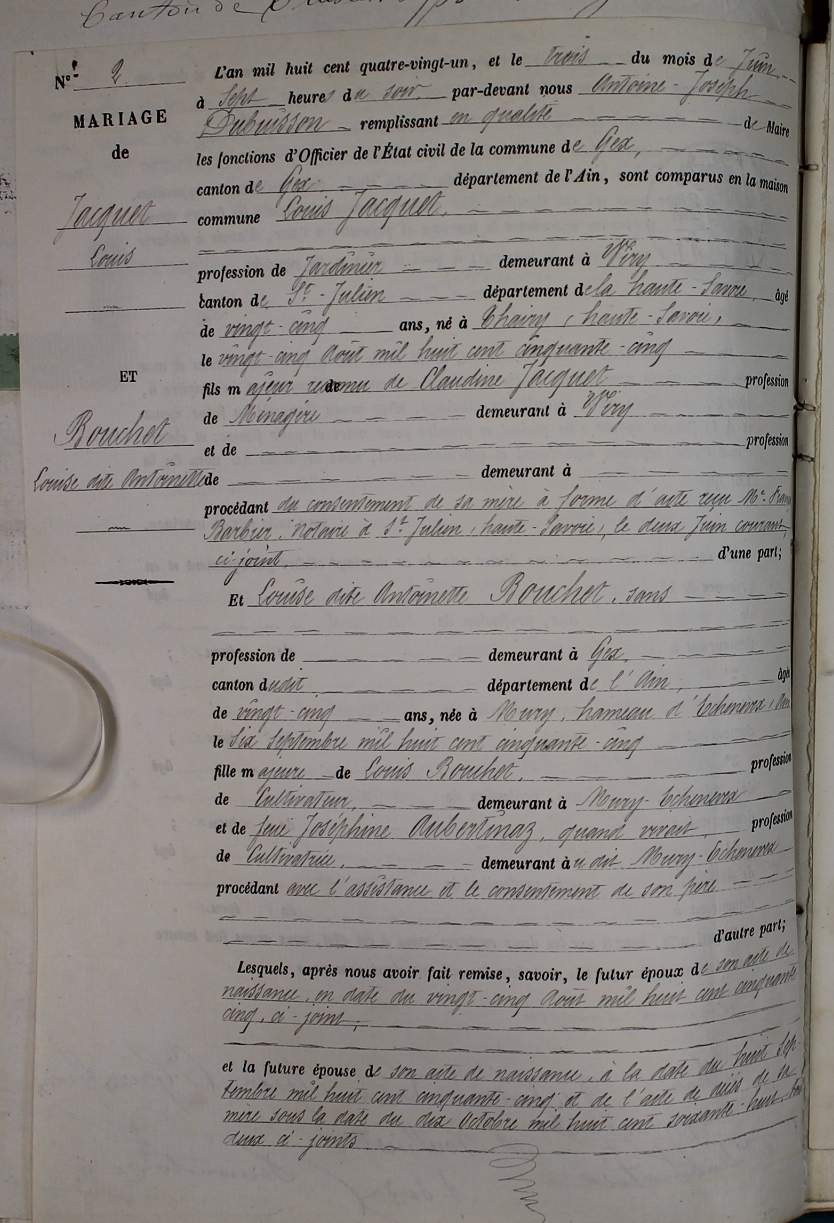 Canton de
N.º 2
MARIAGE
de
Jacquet
Louis
ET
Bouchet
Louise dite Antoinette
L'an mil huit cent quatre-vingt-un, et le trois du mois de Juin
à Sept heures du soir par-devant nous Antoine-Joseph
Dubuisson remplissant en qualité de Maire
les fonctions d'Officier de l'État civil de la commune de Gex,
canton de Gex département de l'Ain, sont comparus en la maison
commune Louis Jacquet,
profession de Jardinier demeurant à Viry
canton de St-Julien département de la haute-Savoie, âgé
de vingt-cinq ans, né à (haute-Savoie),
le vingt-cinq Août mil huit cent cinquante-cinq
fils majeur de Claudine Jacquet profession
de Ménagère demeurant à Viry
et de profession
de demeurant à
procédant du consentement de sa mère à forme d'acte reçu Me.
Barbier, Notaire à St Julien (haute-Savoie), le deux Juin courant,
ci-joint, d'une part;
Et Louise dite Antoinette Bouchet, sans
profession de demeurant à Gex,
canton dudit département de l'Ain, âgée
de vingt-cinq ans, née à Mury, hameau d'Echenevex, Ain
le six Septembre mil huit cent cinquante-cinq
fille majeure de Louis Bouchet, profession
de Cultivateur, demeurant à Mury-Echenevex
et de feue Joséphine Aubertinaz, quand vivait profession
de Cultivatrice, demeurant au dit Mury-Echenevex
procédant avec l'assistance et le consentement de son père
d'autre part;
Lesquels, après nous avoir fait remise, savoir, le futur époux de son acte de
naissance, en date du vingt-cinq Août mil huit cent cinquante
cinq, ci-joint,
et la future épouse de son acte de naissance, à la date du huit Sep-
tembre mil huit cent cinquante-cinq et de l'acte de décès de sa
mère sous la date du dix Octobre mil huit cent soixante-huit, tous
deux ci-joints